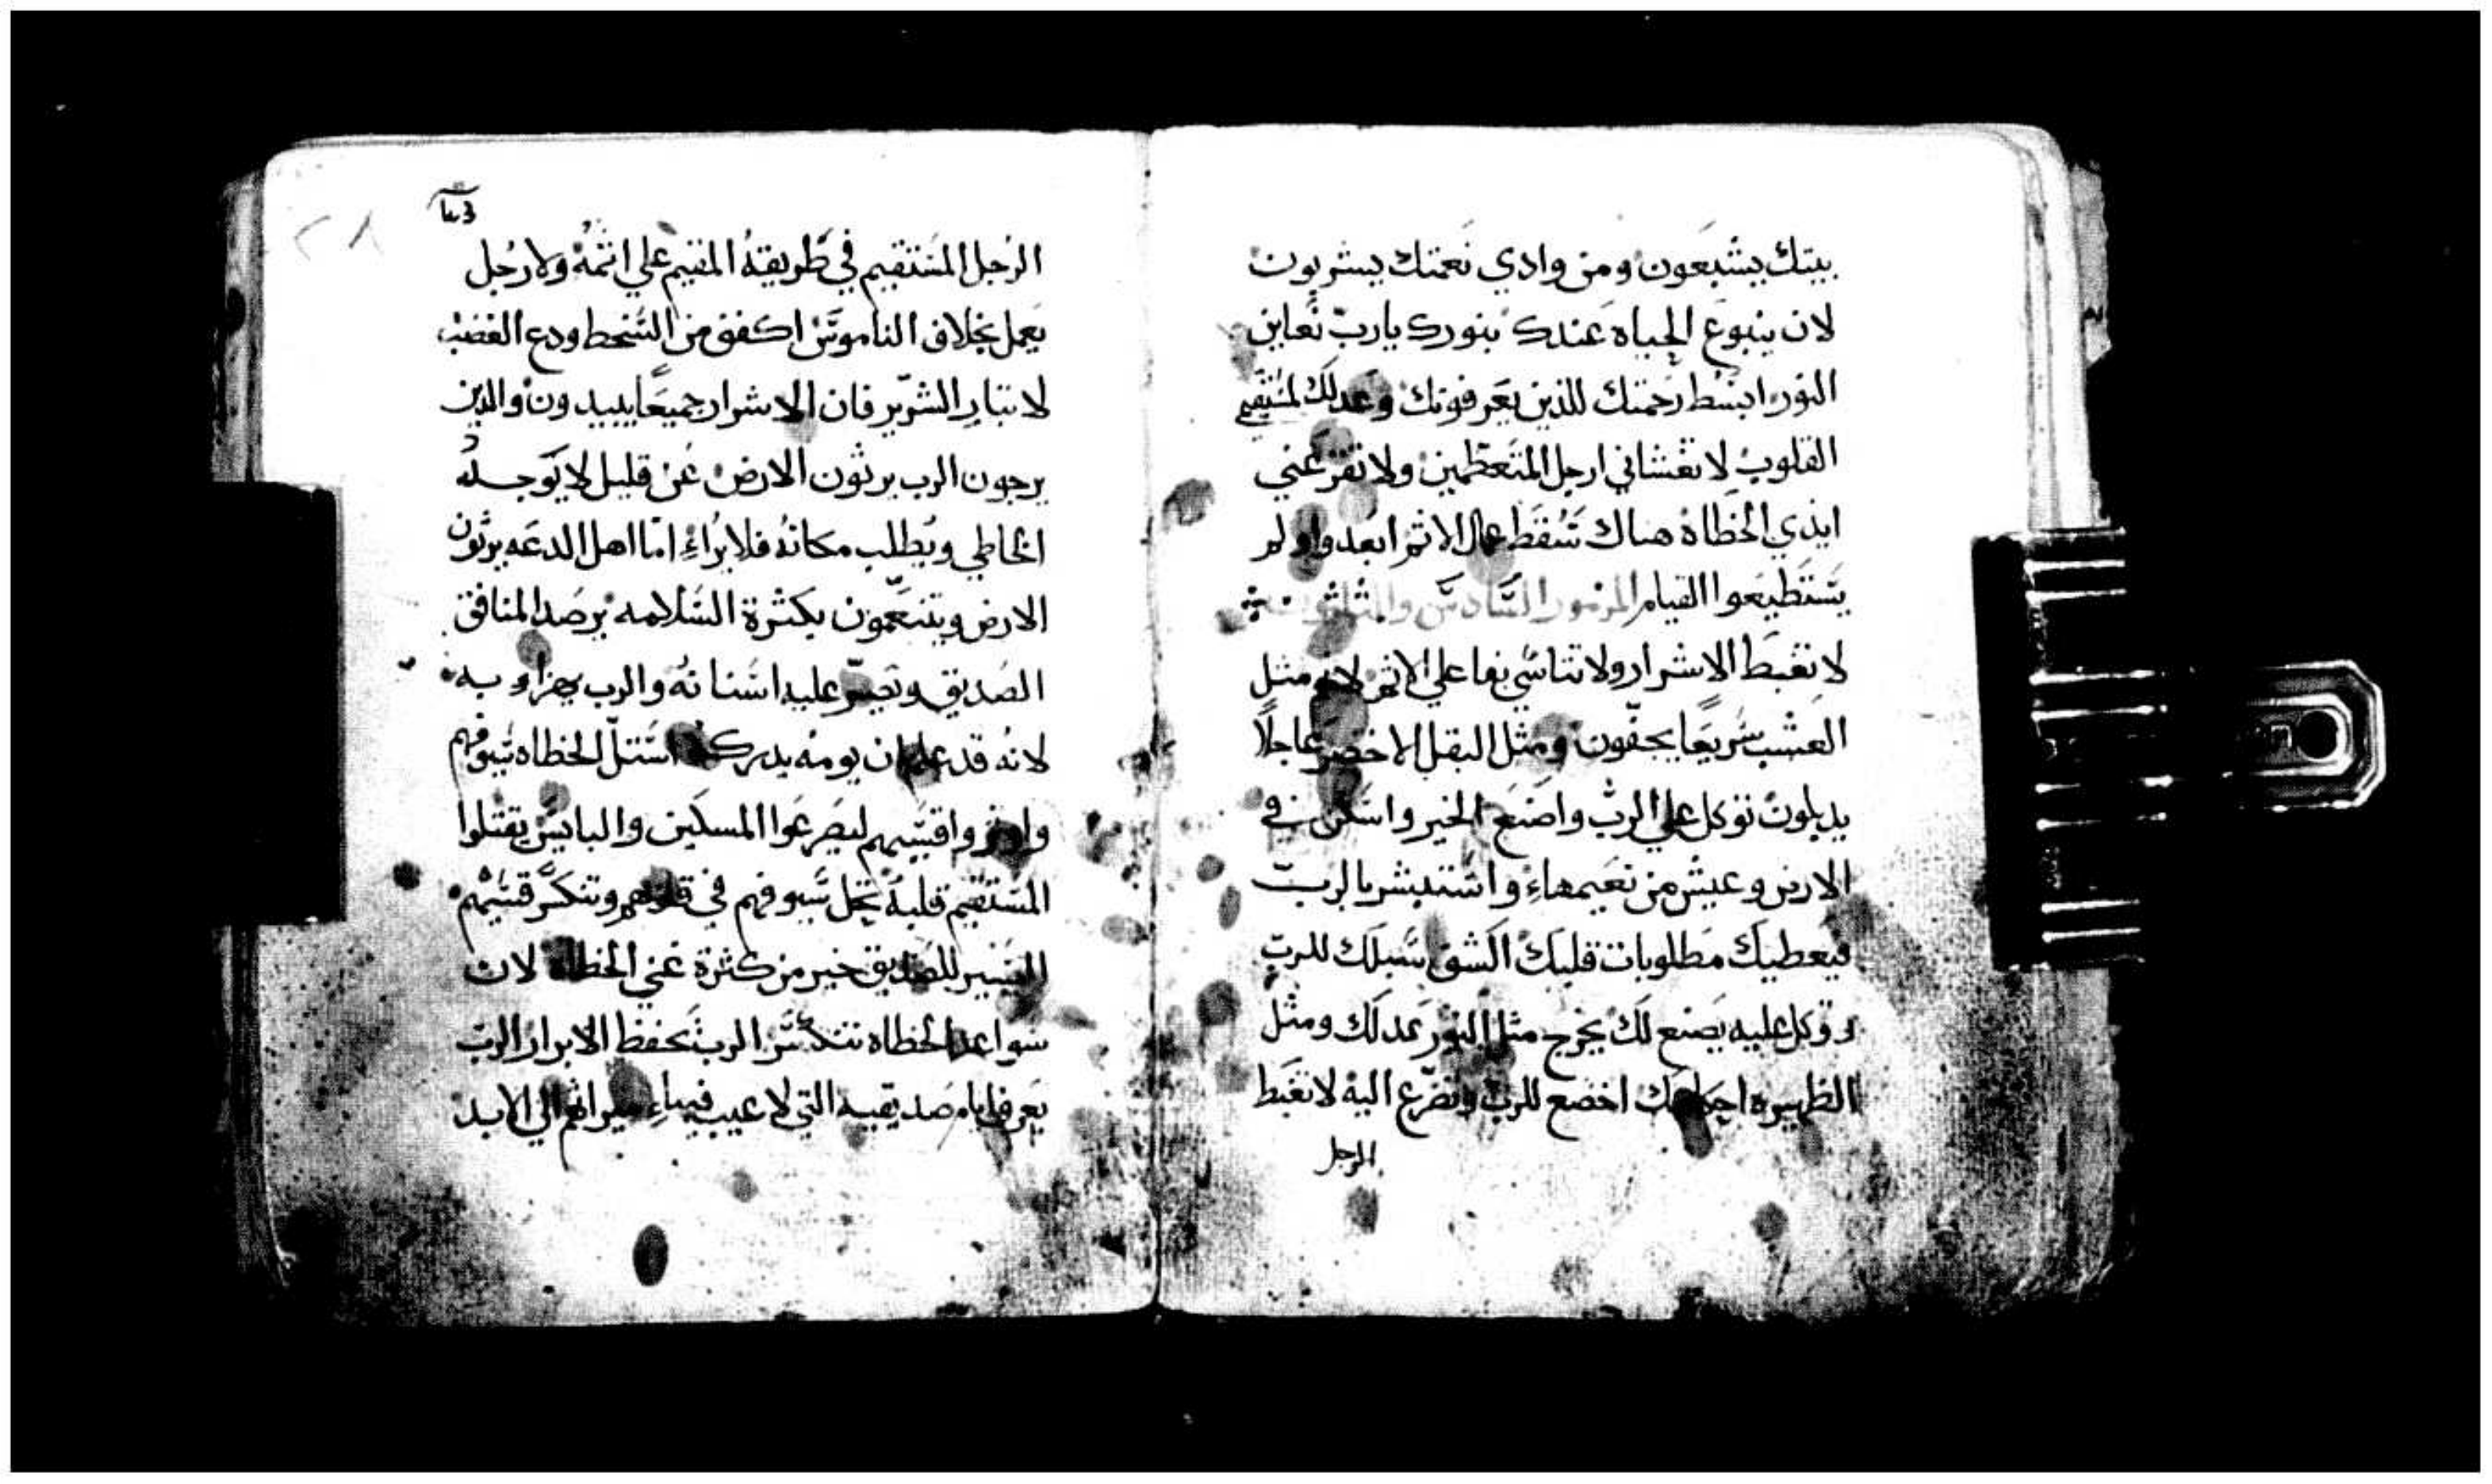 بيتك يشبعون ومن وادي نعمتك يشربون
لان ينبوع الحياه عندك بنورك يارب نعاين
النور ابسط رحمتك للذين يعرفونك وعدلك لمستقيمي
القلوب لا تغشاني ارجل المتعظمين ولا تقر عني
ايذي الخطاه هناك سقط عمال الاثم ابعدوا ولم
يستطيعوا القيام المزمور السادس والثلاثون
لا تغبط الاشرار ولا تتاسي بفاعلي الاثم لانهم مثل
العشب سريعا يجفون ومثل البقل الاخضر عاجلا
يدبلون توكل علي الرب واصنع الخير واسكن في
الارض وعيش من نعيمهاء واستبشر بالرب
فيعطيك مطلوبات قلبك اكشق سبلك للرب
وتوكل عليه يصنع لك يخرج مثل النور عدلك ومثل
الظهيره احكامك اخضع للرب وتضرع اليه لا تغبط
الرجل
٢٨
الرجل المستقيم في طريقته المقيم علي اثمه ولا رجل
يعمل بخلاف الناموس اكفف من السخط ودع الغضب
لا تبار الشرير فان الاشرار جميعا يبيدون والذين
يرجون الرب يرثون الارض عن قليل لا يوجد له
الخاطي ويطلب مكانه فلا يراء اما اهل الدعه يرثون
الارض ويتنعمون بكثرة السلامه يرصد المنافق
الصديق ويصر عليه اسنانه والرب يهزاء به
لانه قد علم ان يومه يدركه استل الخطاه سيوفهم
واوتروا قسيهم ليصرعوا المسكين والبايس يقتلوا
المستقيم قلبه تحل سيوفهم في قلوبهم وتنكسر قسيهم
اليسير للصديق خير من كثرة غني الخطاه لان
سواعد الخطاه تتكسر الرب يحفظ الابرار الرب
يعرف ايام صديقيه التي لا عيب فيهاء ميراثهم الي الابد